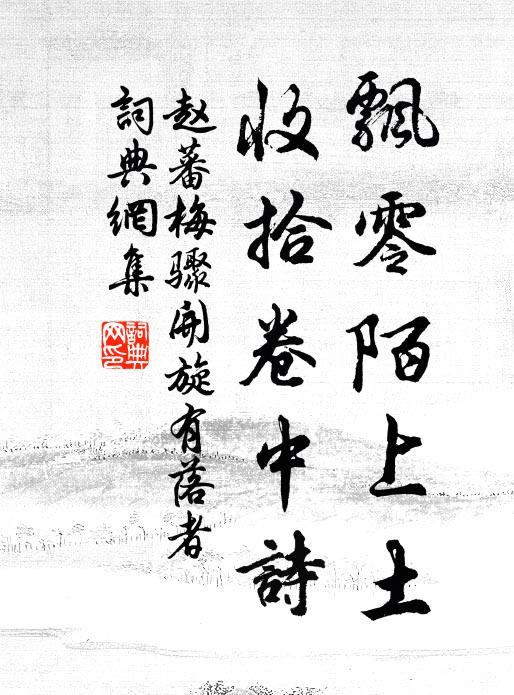 飄零陌上土
收拾卷中詩
赵蕃梅驟開旋有落者
詞典網集
詞典網印